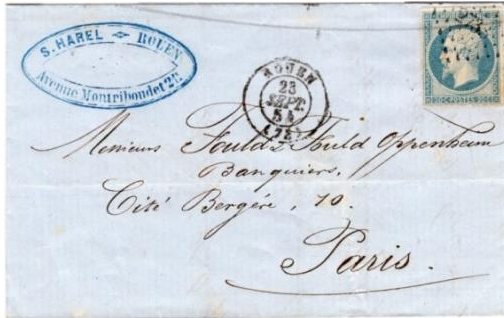 S. HAREL ROUEN
Avenue Montriboudet 25
ROUEN
23
SEPT.
54
(74)
20 C POSTES 20 C
Messieurs Fould & Fould Oppenheim
Banquiers,
Cité Bergère, 10.
Paris.